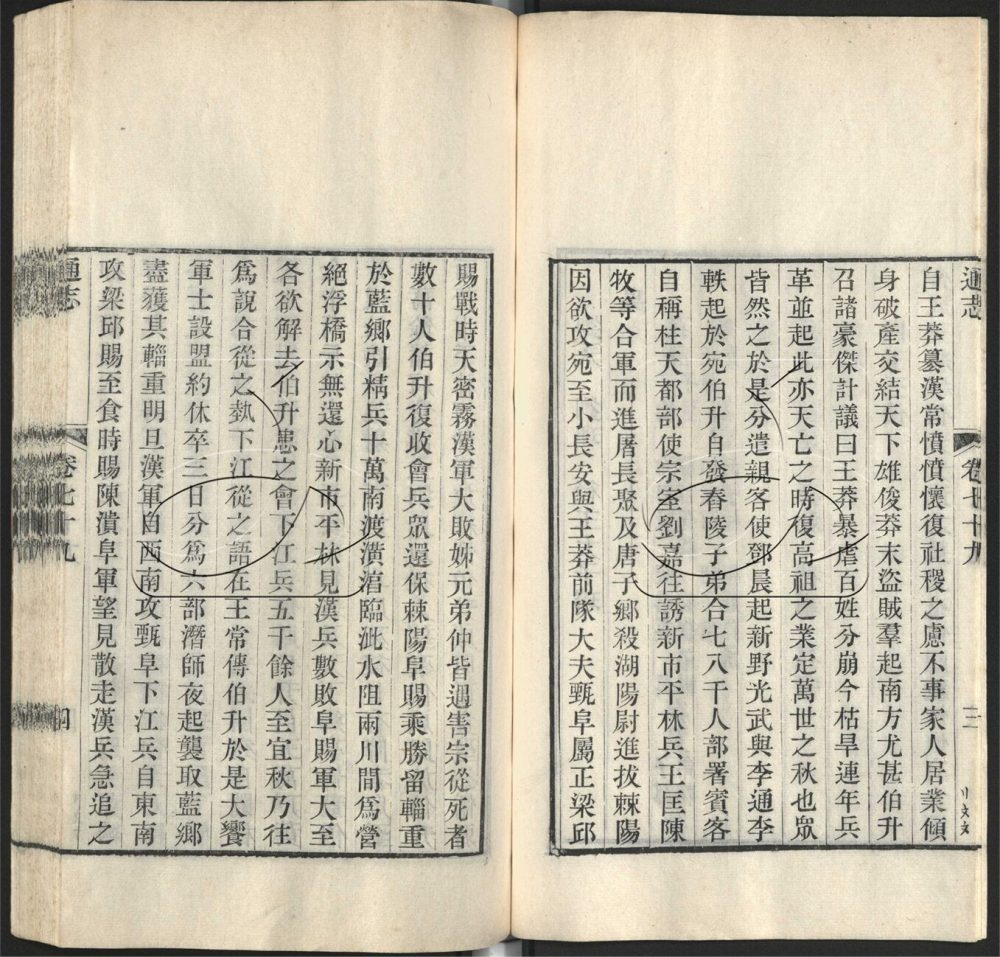 通志
卷七十九
三
自王莽篡漢常憤憤懷復社稷之慮不事家人居業傾
身破產交結天下雄俊莽末盜賊羣起南方尤甚伯升
召諸豪傑計議曰王莽暴虐百姓分崩今枯旱連年兵
革並起此亦天亡之時復高祖之業定萬世之秋也眾
皆然之於是分遣親客使鄧晨起新野光武與李通李
軼起於宛伯升自發舂陵子弟合七八千人部署賓客
自稱柱天都部使宗室劉嘉往誘新市平林兵王匡陳
牧等合軍而進屠長聚及唐子鄉殺湖陽尉進拔棘陽
因欲攻宛至小長安與王莽前隊大夫甄阜屬正梁邱
賜戰時天密霧漢軍大敗姊元弟仲皆遇害宗從死者
數十人伯升復收會兵眾還保棘陽阜賜乘勝留輜重
於藍鄉引精兵十萬南渡潢淯臨沘水阻兩川間為營
絕浮橋示無還心新市平林見漢兵數敗阜賜軍大至
各欲解去伯升患之會下江兵五千餘人至宜秋乃往
為說合從之埶下江從之語在王常傳伯升於是大饗
軍士設盟約休卒三日分為六部潛師夜起襲取藍鄉
盡獲其輜重明旦漢軍自西南攻甄阜下江兵自東南
攻梁邱賜至食時賜陳潰阜軍望見散走漢兵急追之
通志
卷七十九